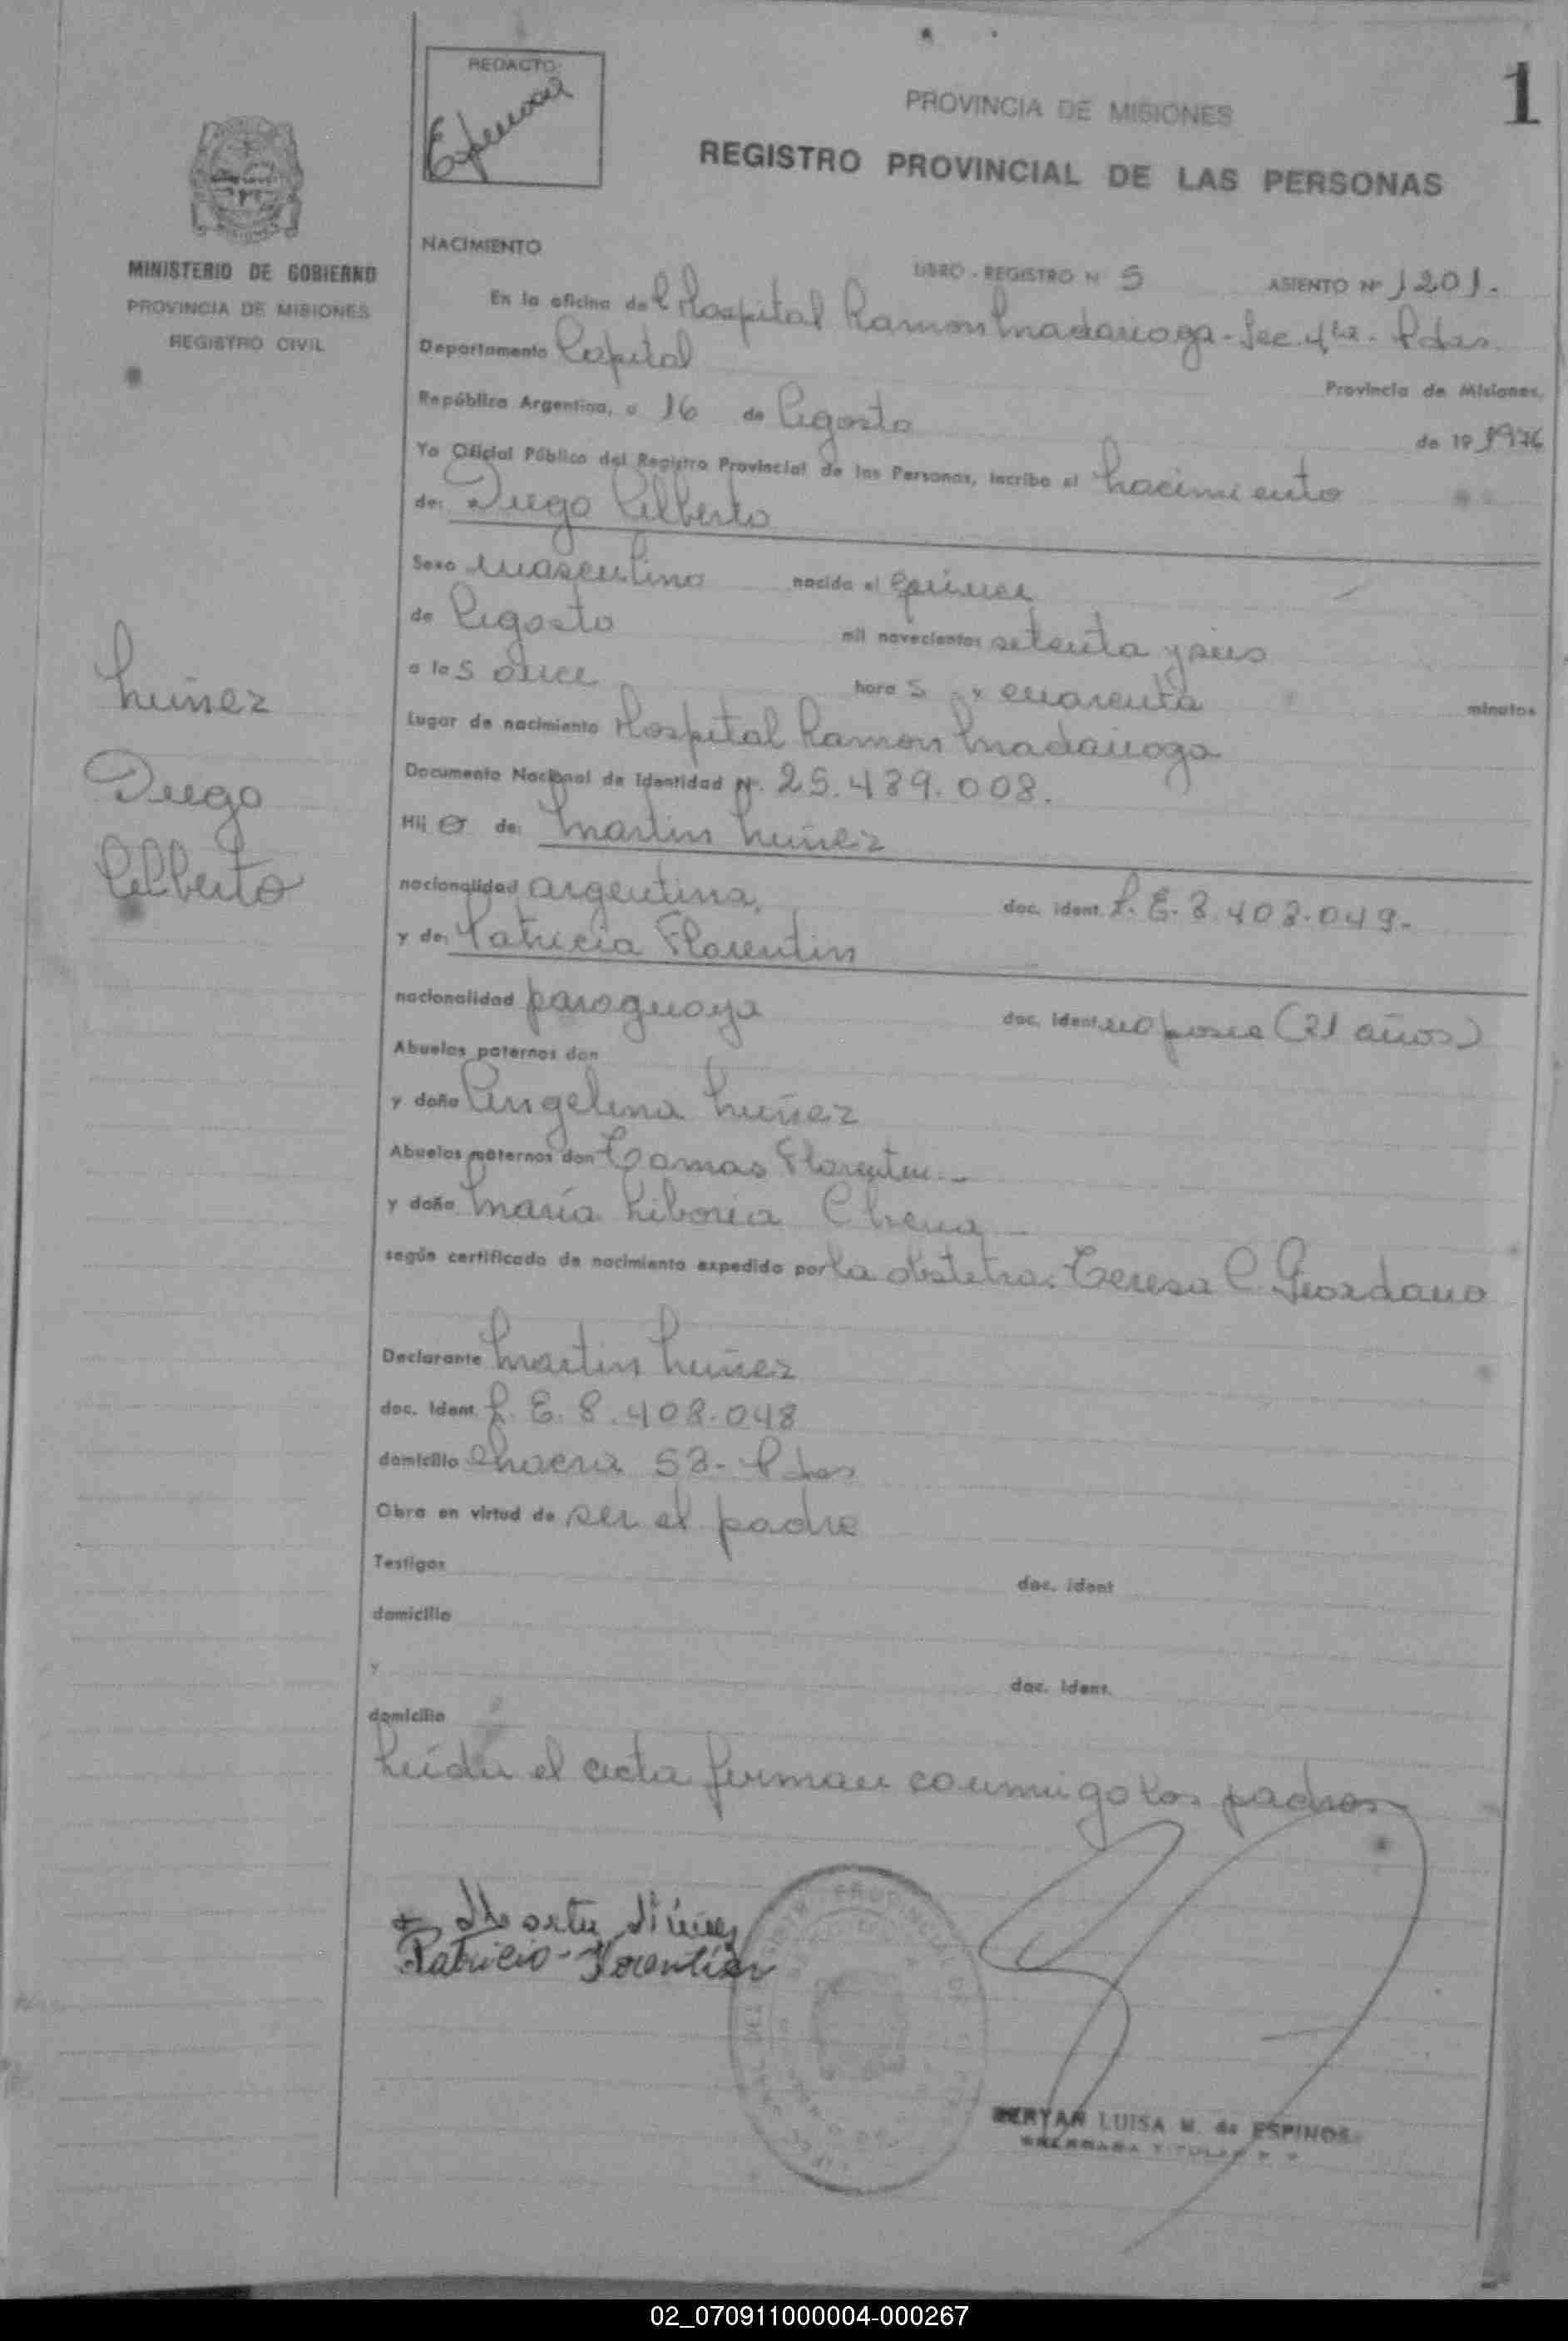 REDACTO:
1
PROVINCIA DE MISIONES
REGISTRO PROVINCIAL DE LAS PERSONAS
MINISTERIO DE GOBIERNO
PROVINCIA DE MISIONES
REGISTRO CIVIL
NACIMIENTO
LIBRO - REGISTRO N 5 ASIENTO Nº 1201.
En la oficina del Hospital Ramon Madariaga - Sec. 4ta. - Pdas
Departamento Capital
Provincia de Misiones,
República Argentina, a 16 de Agosto
de 19 1976
Yo Oficial Público del Registro Provincial de las Personas, incribo el Nacimiento
de: Diego Alberto
Sexo masculino nacido el quince
de Agosto mil novecientos setenta y seis
a las once horas y cuarenta minutos
Lugar de nacimiento Hospital Ramon Madariaga
Documento Nacional de Identidad Nº. 25.489.008.
Hijo de: Martin Nuñez
nacionalidad argentina, doc. ident. L.E. 8.408.049.-
y de: Patricia Florentin
nacionalidad paraguaya doc. ident. no posee (21 años)
Abuelos paternos don
y doña Angelina Nuñez
Abuelos maternos don Tomas Florentin
y doña María Liboria Chena
según certificado de nacimiento expedido por la obstetra: Teresa C. Giordano
Declarante Martin Nuñez
doc. ident. L.E. 8.408.048
domicilio Chacra 58 - Pdas
Obra en virtud de ser el padre
Testigos doc. ident
domicilio
y doc. ident.
domicilio
Leida el acta firman conmigo los padres
Nuñez
Diego
Alberto
Martin Núñez
Patricia - Florentin
LUISA M. de ESPINOSA
02_070911000004-000267